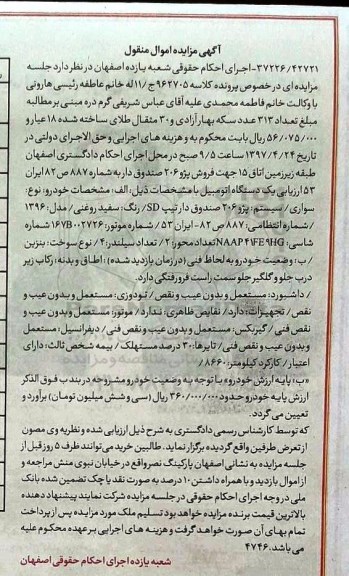 آگهی مزایده اموال منقول
۳۷۲۲۶/۴۲۷۲۱-اجرای احکام حقوقی شعبه یازده اصفهان در نظر دارد جلسه
مزایده ای در خصوص پرونده کلاسه ۹۶۲۷۰۵ ج/۱۱ له خانم عاطفه رئیسی هارونی
با وکالت خانم فاطمه محمدی علیه آقای عباس شریفی گرم دره مبنی بر مطالبه
مبلغ تعداد ۳۱۳ عدد سکه بهار آزادی و ۳۰ مثقال طلای ساخته شده ۱۸ عیار و
۵۶/۰۷۵/۰۰۰ ریال بابت محکوم به و هزینه های اجرایی و حق الاجرای دولتی در
تاریخ ۱۳۹۷/۴/۲۴ ساعت ۹/۵ صبح در محل اجرای احکام دادگستری اصفهان
طبقه زیرزمین اتاق ۱۵ جهت فروش پژو ۲۰۶ صندوق دار به شماره ۸۸۷ ص ۸۲ ایران
۵۳ ارزیابی یک دستگاه اتومبیل با مشخصات ذیل: الف: مشخصات خودرو: نوع:
سواری/ سیستم: پژو ۲۰۶ صندوق دار تیپ SD/ رنگ: سفید روغنی/ مدل: ۱۳۹۶
/ شماره انتظامی: ۸۸۷ ص ۸۲- ایران ۵۳/ شماره موتور: ۱۶۷B۰۰۲۷۲۶ شماره
شاسی: NAAP۴۱FE۹HG تعداد محور: ۲/ تعداد سیلندر: ۴/ نوع سوخت: بنزین
/ ب: وضعیت خودرو به لحاظ فنی (در زمان بازدید شده): اطاق و بدنه: رکاب زیر
درب جلو و گلگیر جلو سمت راست فرورفتگی دارد.
/ داشبورد: مستعمل و بدون عیب و نقص/ تودوزی: مستعمل و بدون عیب و
نقص/ تجهیزات: دارد/ نقایص ظاهری: ندارد/ موتور: مستعمل و بدون عیب و
نقص فنی/ گیربکس: مستعمل و بدون عیب و نقص فنی/ دیفرانسیل: مستعمل
و بدون عیب و نقص فنی/ تایرها: ۳۰ درصد مستهلک/ بیمه شخص ثالث: دارای
اعتبار/ کارکرد کیلومتر: ۸۶۶۰/
«ب» پایه ارزش خودرو: با توجه به وضعیت خودرو مشروحه در بند ب فوق الذکر
ارزش پایه خودرو حدود ۳۶۰/۰۰۰/۰۰۰ ریال (سی و شش میلیون تومان) برآورد و
تعیین می گردد.
که توسط کارشناس رسمی دادگستری به شرح ذیل ارزیابی شده و نظریه وی مصون
از تعرض طرفین واقع گردیده برگزار نماید. طالبین خرید می توانند ظرف ۵ روز قبل از
جلسه مزایده به نشانی اصفهان پارکینگ نصر واقع در خیابان نبوی منش مراجعه و
از اموال بازدید و با همراه داشتن ۱۰ درصد به صورت نقد یا چک تضمین شده بانک
ملی در وجه اجرای احکام حقوقی در جلسه مزایده شرکت نمایند پیشنهاد دهنده
بالاترین قیمت برنده مزایده خواهد بود تسلیم ملک مورد مزایده پس از پرداخت
تمام بهای آن صورت خواهد گرفت و هزینه های اجرایی بر عهده محکوم علیه
می باشد. ۴۷۴۶
شعبه یازده اجرای احکام حقوقی اصفهان